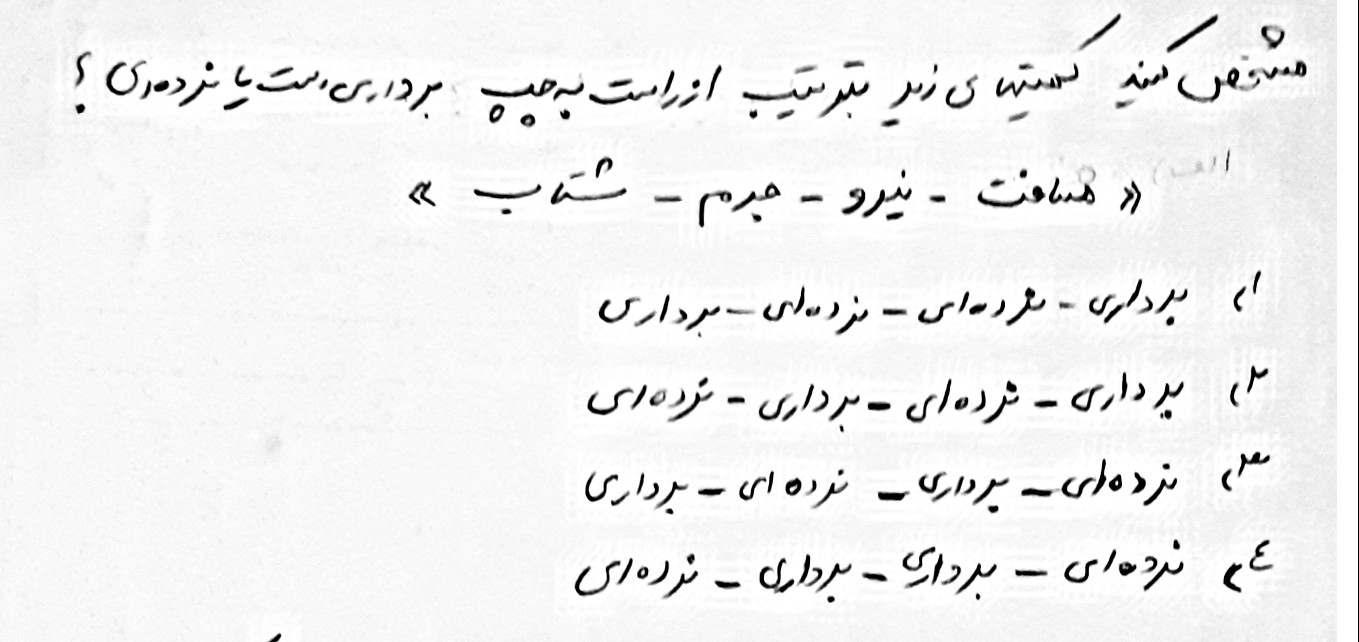 مشخص کنید کمیتهای زیر بترتیب از راست به چپ برداری ست یا نرده‌ای ؟
الف)
« مسافت - نیرو - جرم - شتاب »
۱) برداری - نرده‌ای - نرده‌ای - برداری
۲) برداری - نرده‌ای - برداری - نرده‌ای
۳) نرده‌ای - برداری - نرده‌ای - برداری
۴) نرده‌ای - برداری - برداری - نرده‌ای